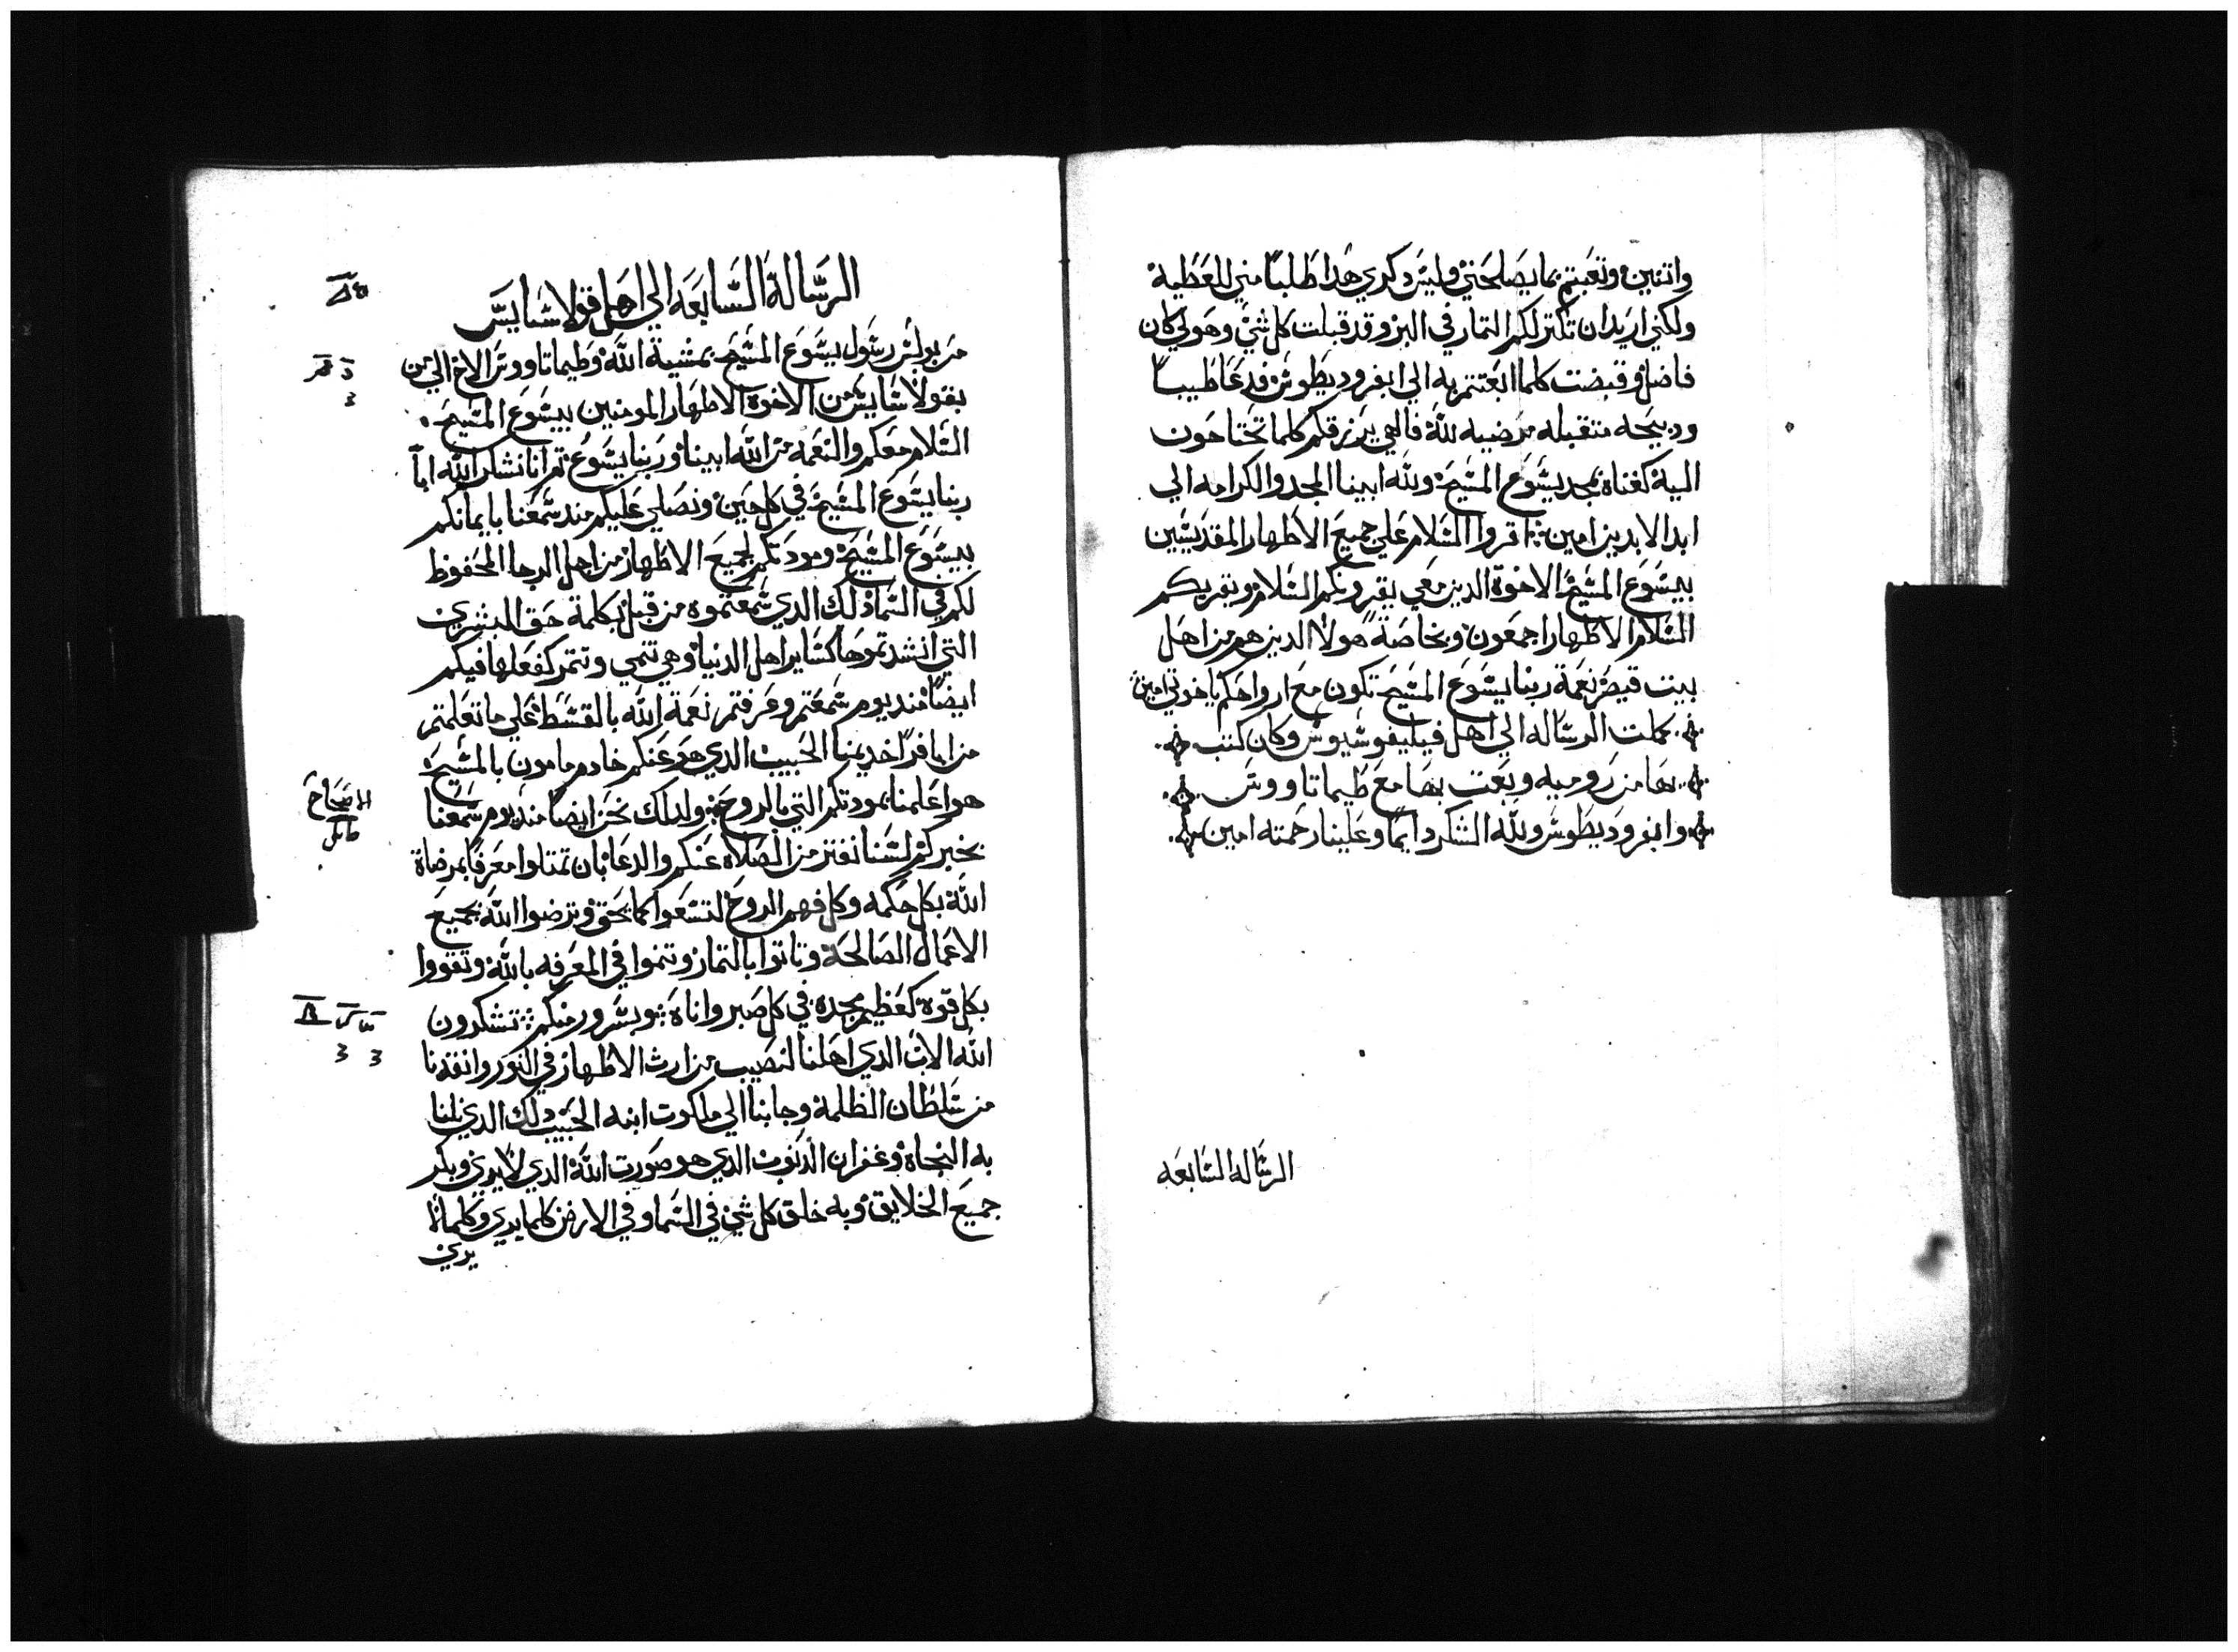 واتنين وتعبتم بما يصلحني وليس دكري هدا طلبا مني للعطية
ولكني اريد ان تكتر لكم التمار في البر وقد قبلت كل شي وهو لي كان
فاضل وقبضت كلما ابعتتم به الي ابفروديطوس فدعا طيبا
ودبيحه متقبله مرضيه لله فالهي يرزقكم كلما تحتاجون
اليه كغناه بمجد يسوع المسيح ولله ابينا المجد والكرامه الي
ابد الابدين امين اقروا السلام علي جميع الاطهار المقديسين
بيسوع المسيح الاخوة الدين معي يقرونكم السلام ويقريكم
السلام الاطهار اجمعون وبخاصة هولا الدين هم من اهل
بيت قيصر نعمة ربنا يسوع المسيح تكون مع ارواحكم ياخوتي امين
كملت الرساله الي اهل فيليفوسيوس وكان كتب
بها من روميه وبعت بها مع طيماتاووس
وابفروديطوس ولله الشكر دايما وعلينا رحمته امين
الرساله السابعه
الرسالة السابعه الي اهل قولاسايس
من بولس رسول يسوع المسيح بمشية الله وطيماتاووس الاخ الي من
بقولاسايس من الاخوة الاطهار المومنين بيسوع المسيح
السلام معكم والنعمة من الله ابينا وربنا يسوع تم انا نشكر الله ابا
ربنا يسوع المسيح في كل حين ونصلي عليكم مند سمعنا بايمانكم
بيسوع المسيح ومودتكم لجميع الاطهار من اجل الرجا المحفوظ
لكم في السما دلك الدي سمعتموه من قبل بكلمة حق البشري
التي انشدتموها كساير اهل الدنيا وهي تنمي وتتمر كفعلها فيكم
ايضا مند يوم سمعتم وعرفتم نعمة الله بالقسط علي ما تعلمتم
من ابافرا خديمنا الحبيب الدي هو عنكم خادم مامون بالمسيح
هو اعلمنا بمودتكم التي بالروح ولدلك نحن ايضا مند يوم سمعنا
بخبركم لسنا نفتر من الصلاة عنكم والدعا بان تمتلوا معرفا بمرضاة
الله بكل حكمه وكل فهم الروح لتسعوا كما يحق وترضوا الله بجميع
الاعمال الصالحة وتاتوا بالتمار وتنموا في المعرفه بالله وتقووا
بكل قوة كعظيم مجده في كل صبر واناة وبسرور منكم تشكرون
الله الاب الدي اهلنا لنصيب من ارث الاطهار في النور وانقدنا
من سلطان الظلمة وجابنا الي ملكوت ابنه الحبيب دلك الدي نلنا
به النجاة وغفران الدنوب الدي هو صورت الله الدي لا يري وبكر
جميع الخلايق وبه خلق كل شي في السما وفي الارض كلما يري وكلما لا
يري
الاصحاح